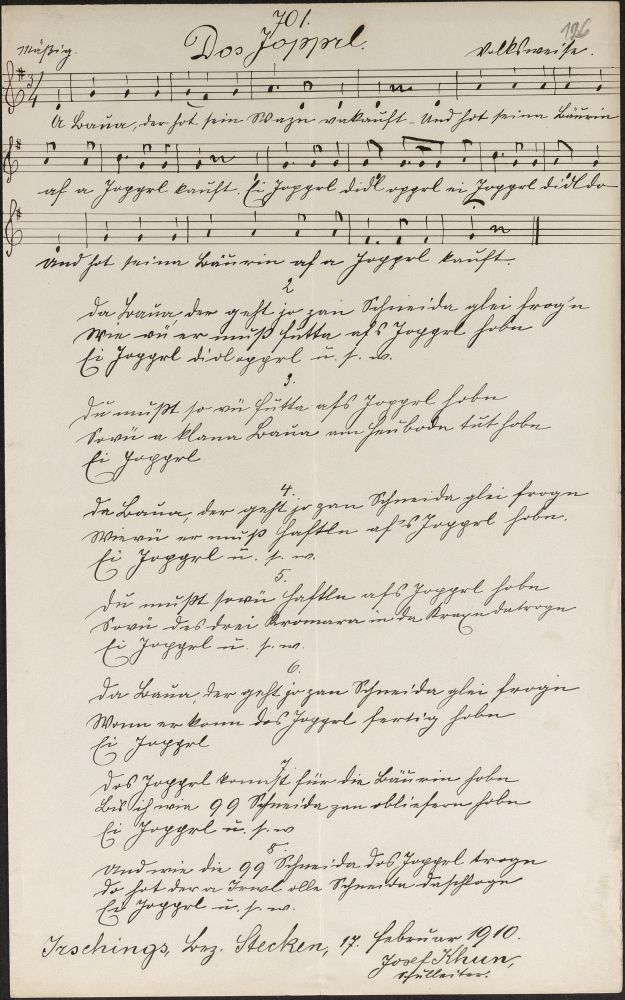 701.
126
Dos Joppel.
Mäßig.
Volksweise.
3/4
A Baua, der hot sein Wazn vakauft - Und hot seina Bäurin
af a Joppel kauft. Ei Joppel didl oppel ei Joppel didl do
und hot seina Bäurin af a Joppel kauft.
2
Da Baua der geht jo zan Schneida glei frog'n
Wie vü er muß Futta afs Joppel hobn
Ei Joppel didloppel u. s. w.
3.
Du mußt so vü Futta afs Joppel hobn
Sovü a klana Baua am Heubodn tut hobn
Ei Joppel
4.
Da Baua, der geht jo zan Schneida glei frogn
Wievü er muß Haftln af's Joppel hobn.
Ei Joppel u. s. w.
5.
Du mußt sovü Haftln afs Joppel hobn
Sovü des drei Kromara in da Kraxn datrogn
Ei Joppel u. s. w.
6.
Da Baua, der geht jo zan Schneida glei frogn
Wonn er konn des Joppel fertig hobn
Ei Joppel
7.
Das Joppel konnst für die Bäurin hobn
Bis ich wia 99 Schneida zan obliefern hobn
Ei Joppel u. s. w
8.
Und wie die 99 Schneida das Joppel trogn
Do hot der a olle Schneida daschlogn
Ei Joppel u. s. w.
Irschings, Bez. Stecken, 17. Februar 1910.
Josef Khun,
Schulleiter.